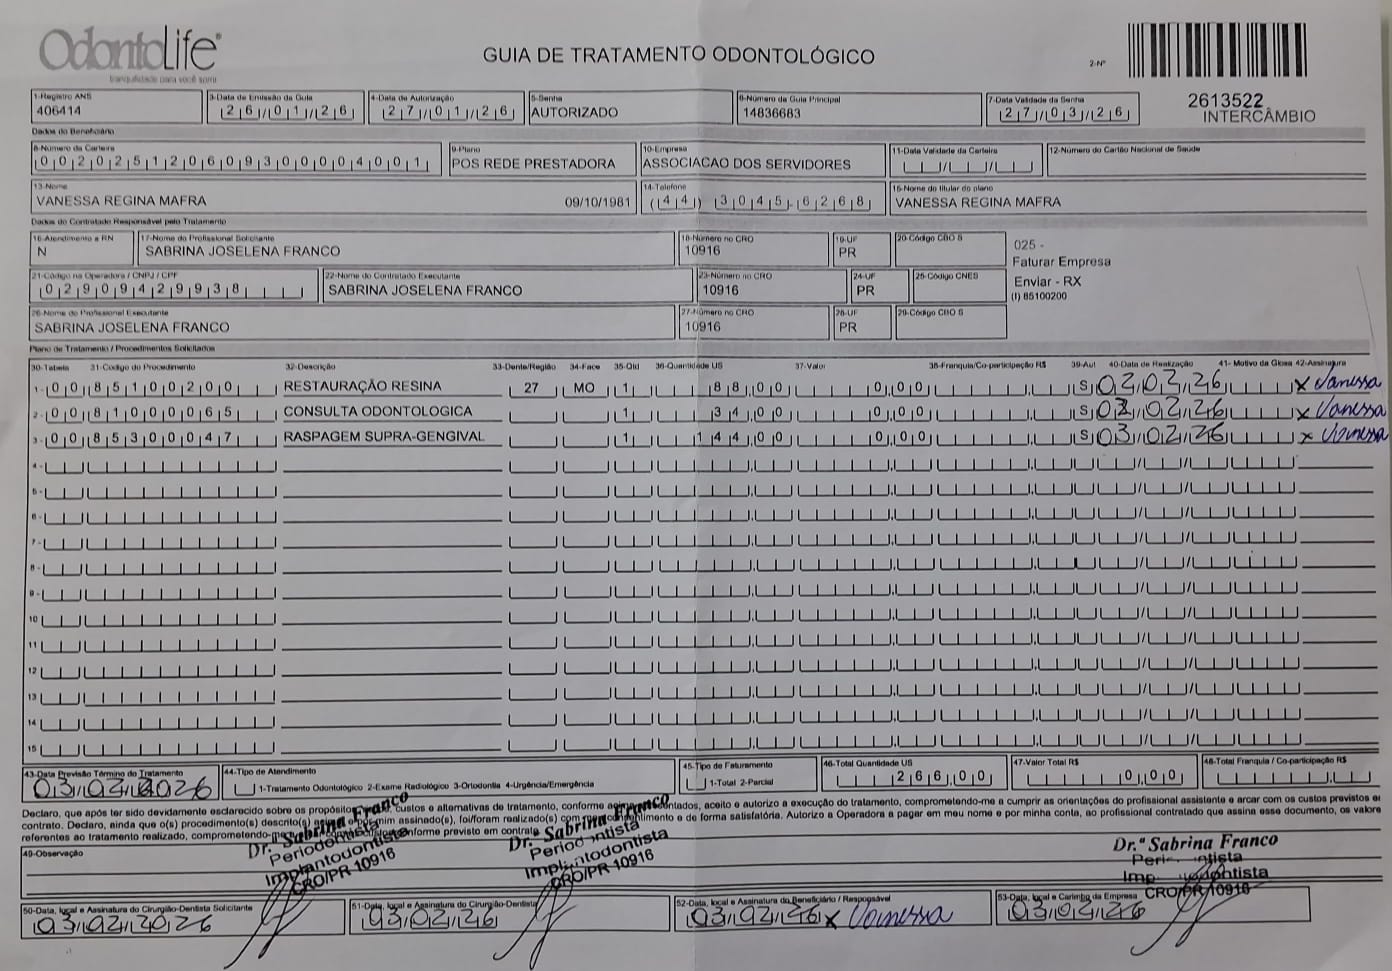 OdontoLife
tranquilidade para você sorrir
GUIA DE TRATAMENTO ODONTOLÓGICO
2-Nº
2613522
INTERCÂMBIO
1-Registro ANS 3-Data de Emissão da Guia 4-Data de Autorização 5-Senha 6-Número da Guia Principal 7-Data Validade da Senha
406414 26/01/26 27/01/26 AUTORIZADO 14836683 27/03/26
Dados do Beneficiário
8-Número da Carteira 9-Plano 10-Empresa 11-Data Validade da Carteira 12-Número do Cartão Nacional de Saúde
002025120609300004001 POS REDE PRESTADORA ASSOCIACAO DOS SERVIDORES
13-Nome 14-Telefone 15-Nome do titular do plano
VANESSA REGINA MAFRA 09/10/1981 (44) 3045-6268 VANESSA REGINA MAFRA
Dados do Contratado Responsável pelo Tratamento
16-Atendimento a RN 17-Nome do Profissional Solicitante 18-Número no CRO 19-UF 20-Código CBO S
N SABRINA JOSELENA FRANCO 10916 PR
025 -
Faturar Empresa
Enviar - RX
(I) 85100200
21-Código na Operadora / CNPJ / CPF 22-Nome do Contratado Executante 23-Número no CRO 24-UF 25-Código CNES
02909429938 SABRINA JOSELENA FRANCO 10916 PR
26-Nome do Profissional Executante 27-Número no CRO 28-UF 29-Código CBO S
SABRINA JOSELENA FRANCO 10916 PR
Plano de Tratamento / Procedimentos Solicitados
30-Tabela 31-Código do Procedimento 32-Descrição 33-Dente/Região 34-Face 35-Qtd 36-Quantidade US 37-Valor 38-Franquia/Co-participação R$ 39-Aut 40-Data de Realização 41- Motivo da Glosa 42-Assinatura
1- 00 85100200 RESTAURAÇÃO RESINA 27 MO 1 88,00 0,00 S 02 02 26 x Vanessa
2- 00 81000065 CONSULTA ODONTOLOGICA 1 34,00 0,00 S 02 02 26 x Vanessa
3- 00 85300047 RASPAGEM SUPRA-GENGIVAL 1 144,00 0,00 S 03 02 26 x Vanessa
4-
5-
6-
7-
8-
9-
10
11
12
13
14
15
43-Data Previsão Término do Tratamento 44-Tipo de Atendimento 45-Tipo de Faturamento 46-Total Quantidade US 47-Valor Total R$ 48-Total Franquia / Co-participação R$
03 02 2026 1-Tratamento Odontológico 2-Exame Radiológico 3-Ortodontia 4-Urgência/Emergência 1-Total 2-Parcial 266,00 0,00
Declaro, que após ter sido devidamente esclarecido sobre os propósitos, custos e alternativas de tratamento, conforme acima apresentados, aceito e autorizo a execução do tratamento, comprometendo-me a cumprir as orientações do profissional assistente e arcar com os custos previstos em
contrato. Declaro, ainda que o(s) procedimento(s) descrito(s) por mim assinado(s), foi/foram realizado(s) com consentimento e de forma satisfatória. Autorizo a Operadora a pagar em meu nome e por minha conta, ao profissional contratado que assina esse documento, os valores
referentes ao tratamento realizado, comprometendo-me conforme previsto em contrato.
49-Observação
Dr.ª Sabrina Franco
Periodontista
Implantodontista
CRO/PR 10916
Dr.ª Sabrina Franco
Periodontista
Implantodontista
CRO/PR 10916
Dr.ª Sabrina Franco
Periodontista
Implantodontista
CRO/PR 10916
50-Data, local e Assinatura do Cirurgião-Dentista Solicitante 51-Data, local e Assinatura do Cirurgião-Dentista 52-Data, local e Assinatura do Beneficiário / Responsável 53-Data, local e Carimbo da Empresa
03 02 2026 03 02 26 03 02 26 x Vanessa 03 02 26